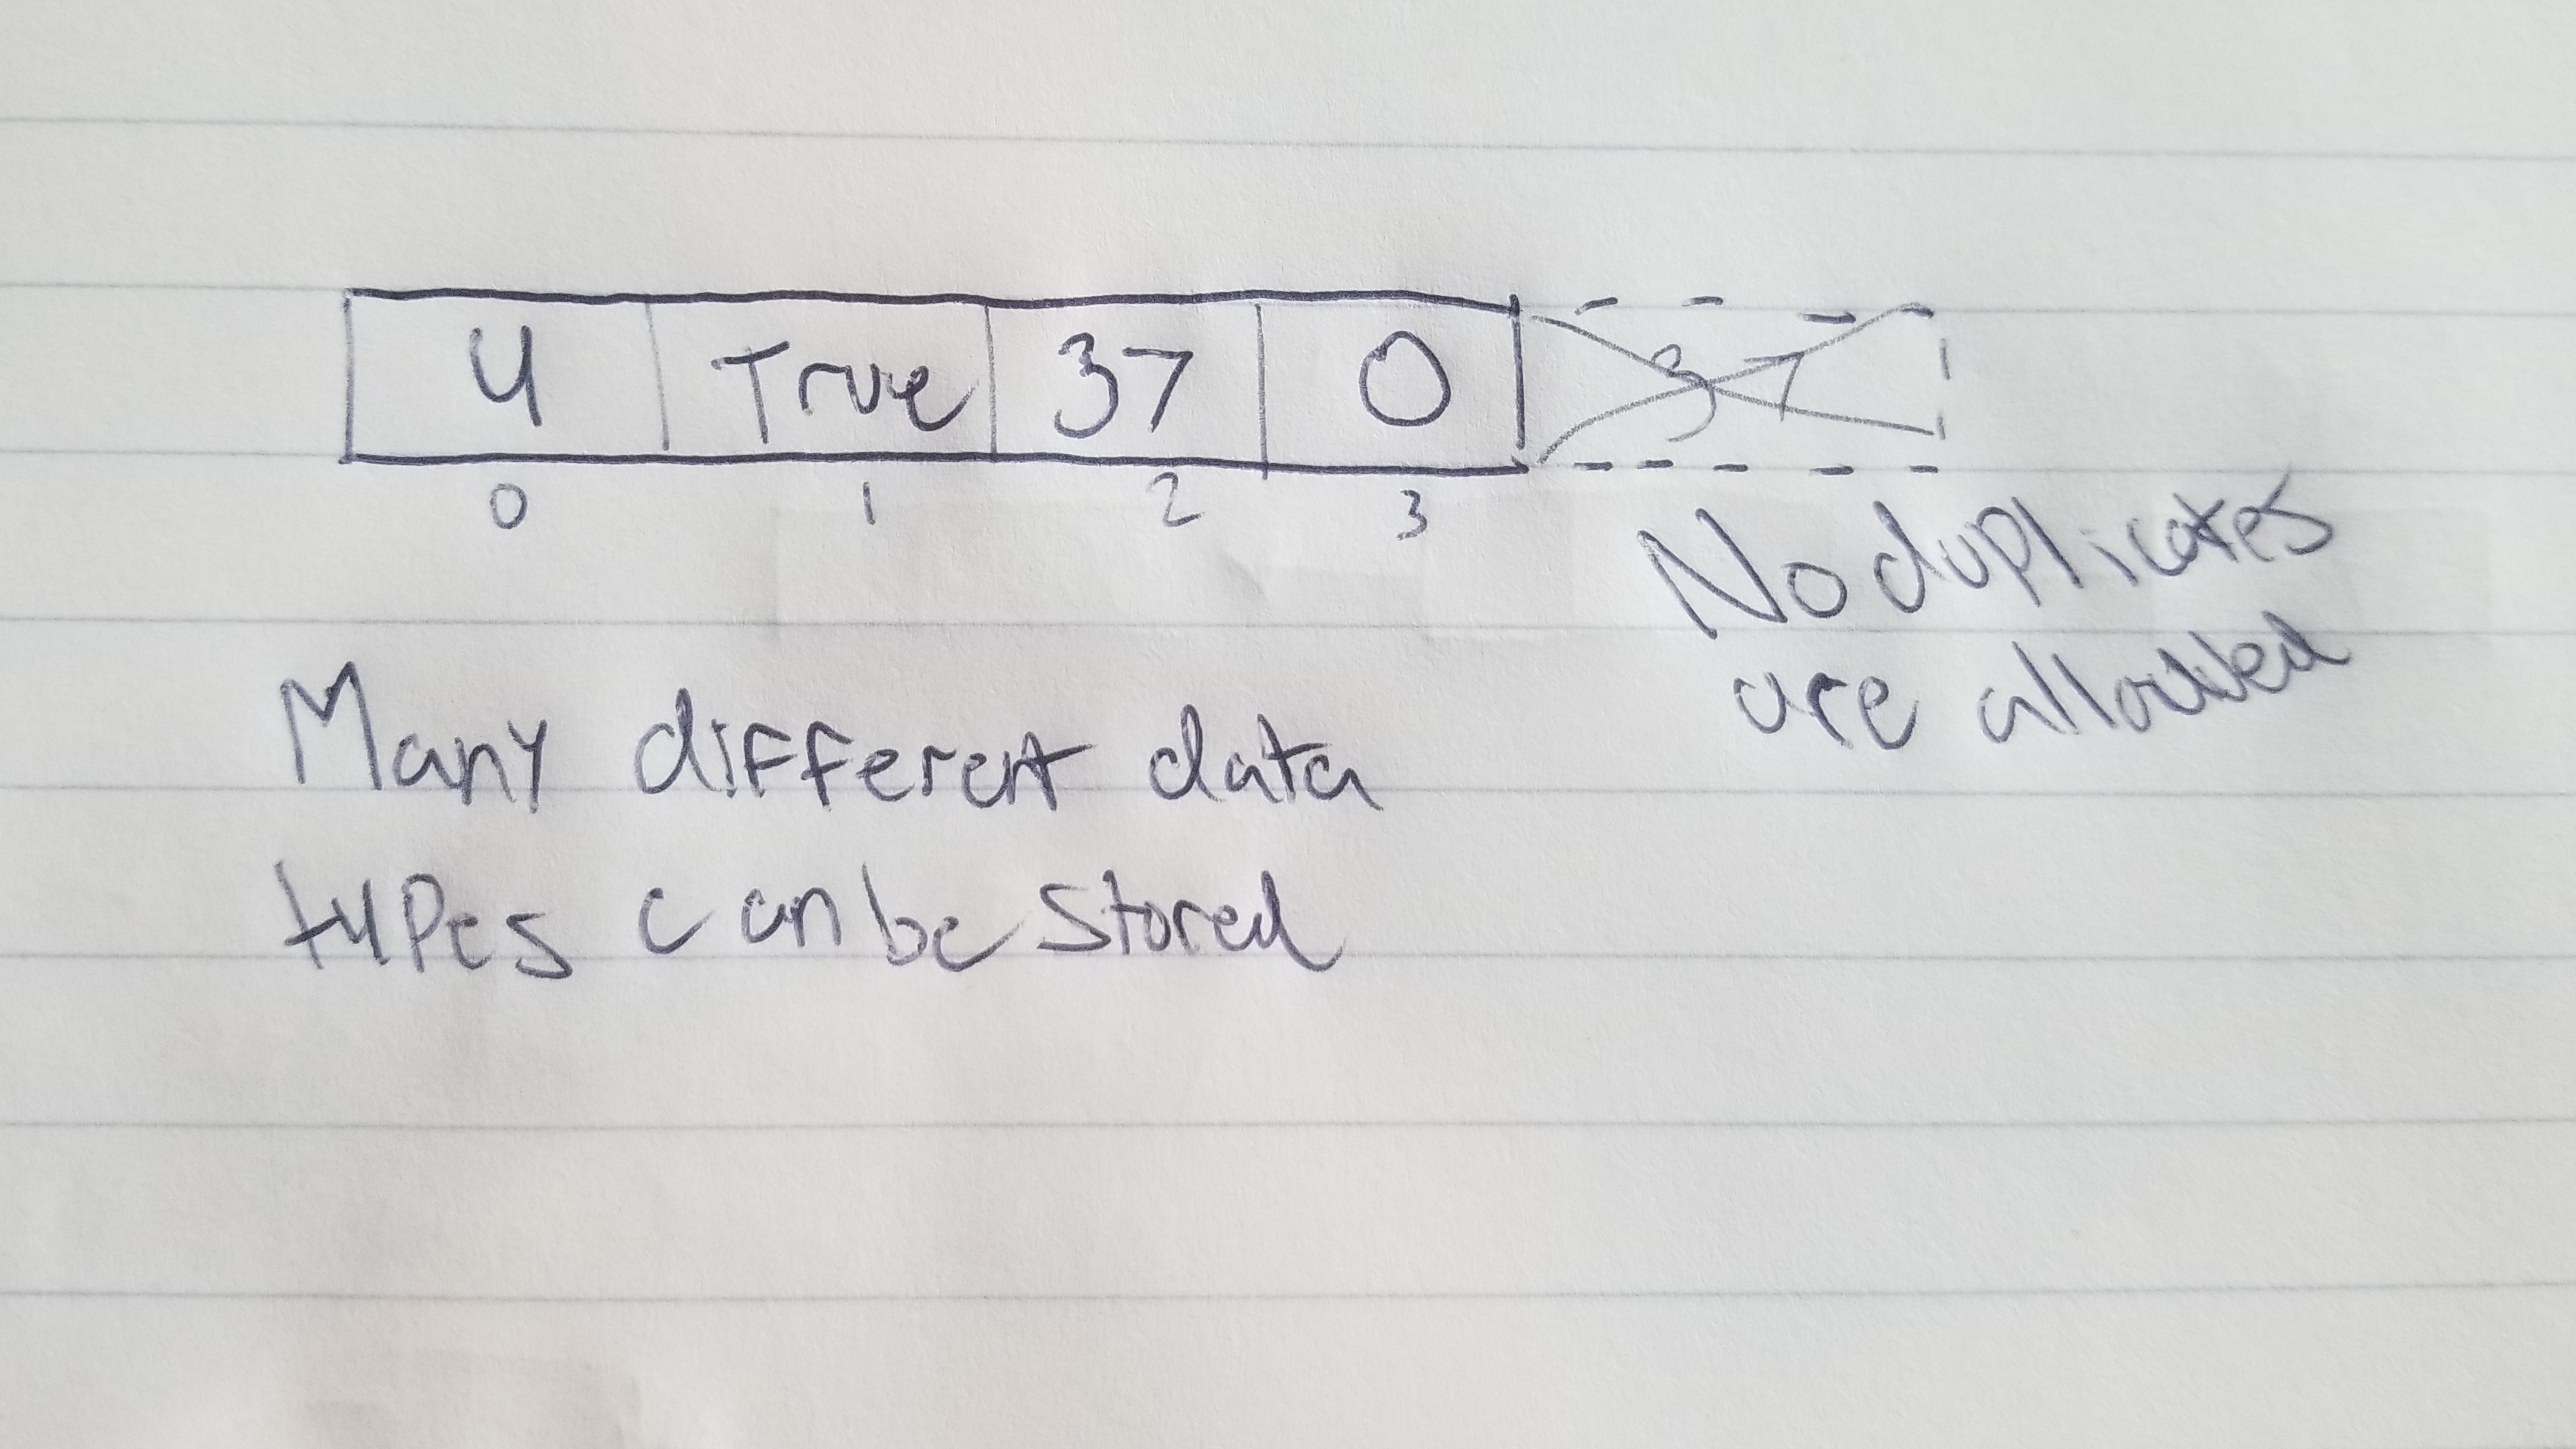 4 True 37 0 37
0 1 2 3
No duplicates
are allowed
Many different data
types can be stored